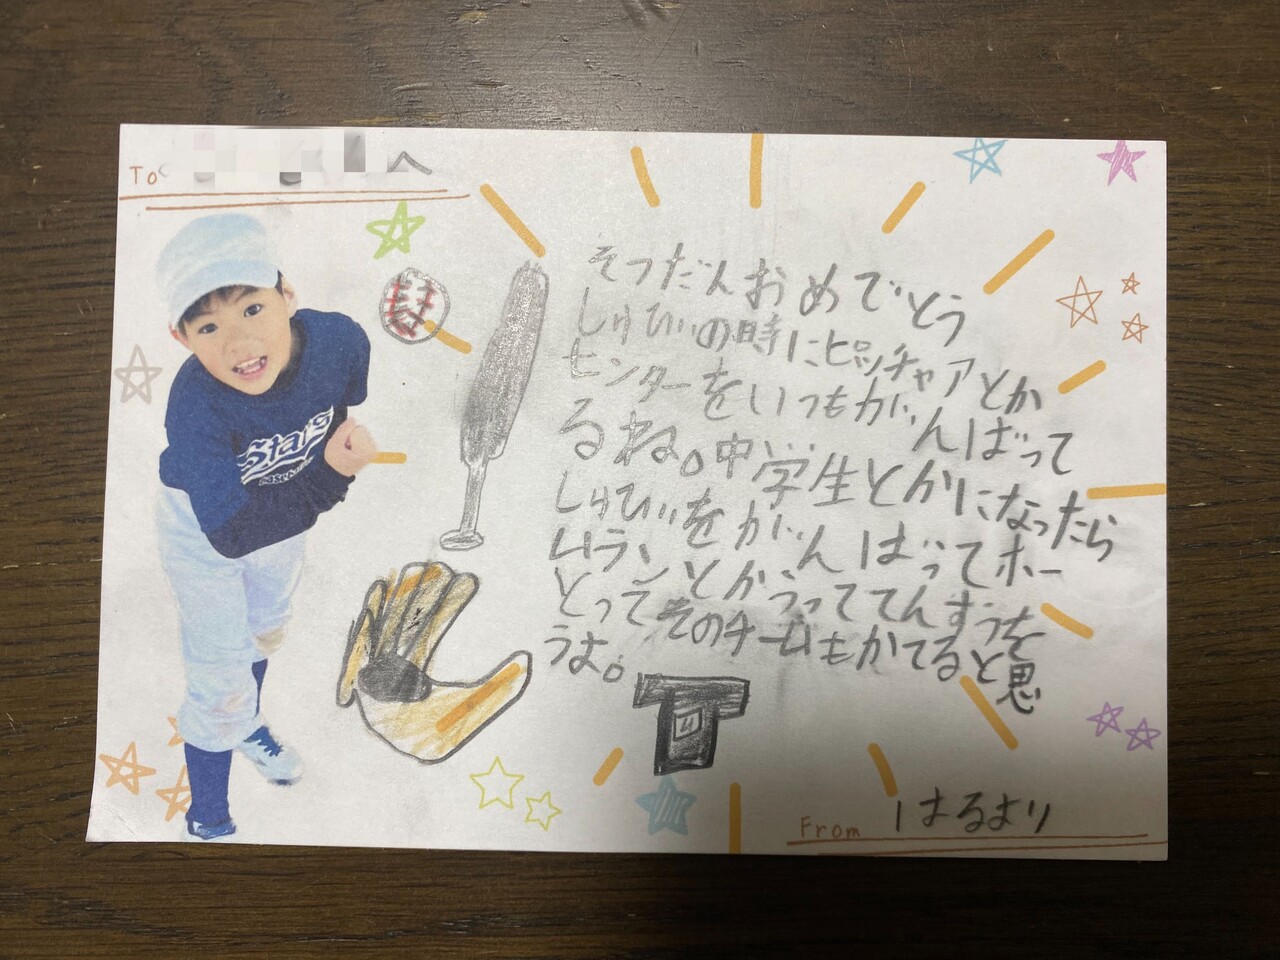 To へ
Stars
Baseball
そつだんおめでとう
しゅびの時にピッチャアとか
センターをいつもがんばって
るね。中学生とかになったら
しゅびをがんばってホー
ムランとかうっててんすうを
とってそのチームもかてると思
うよ。
From はるより